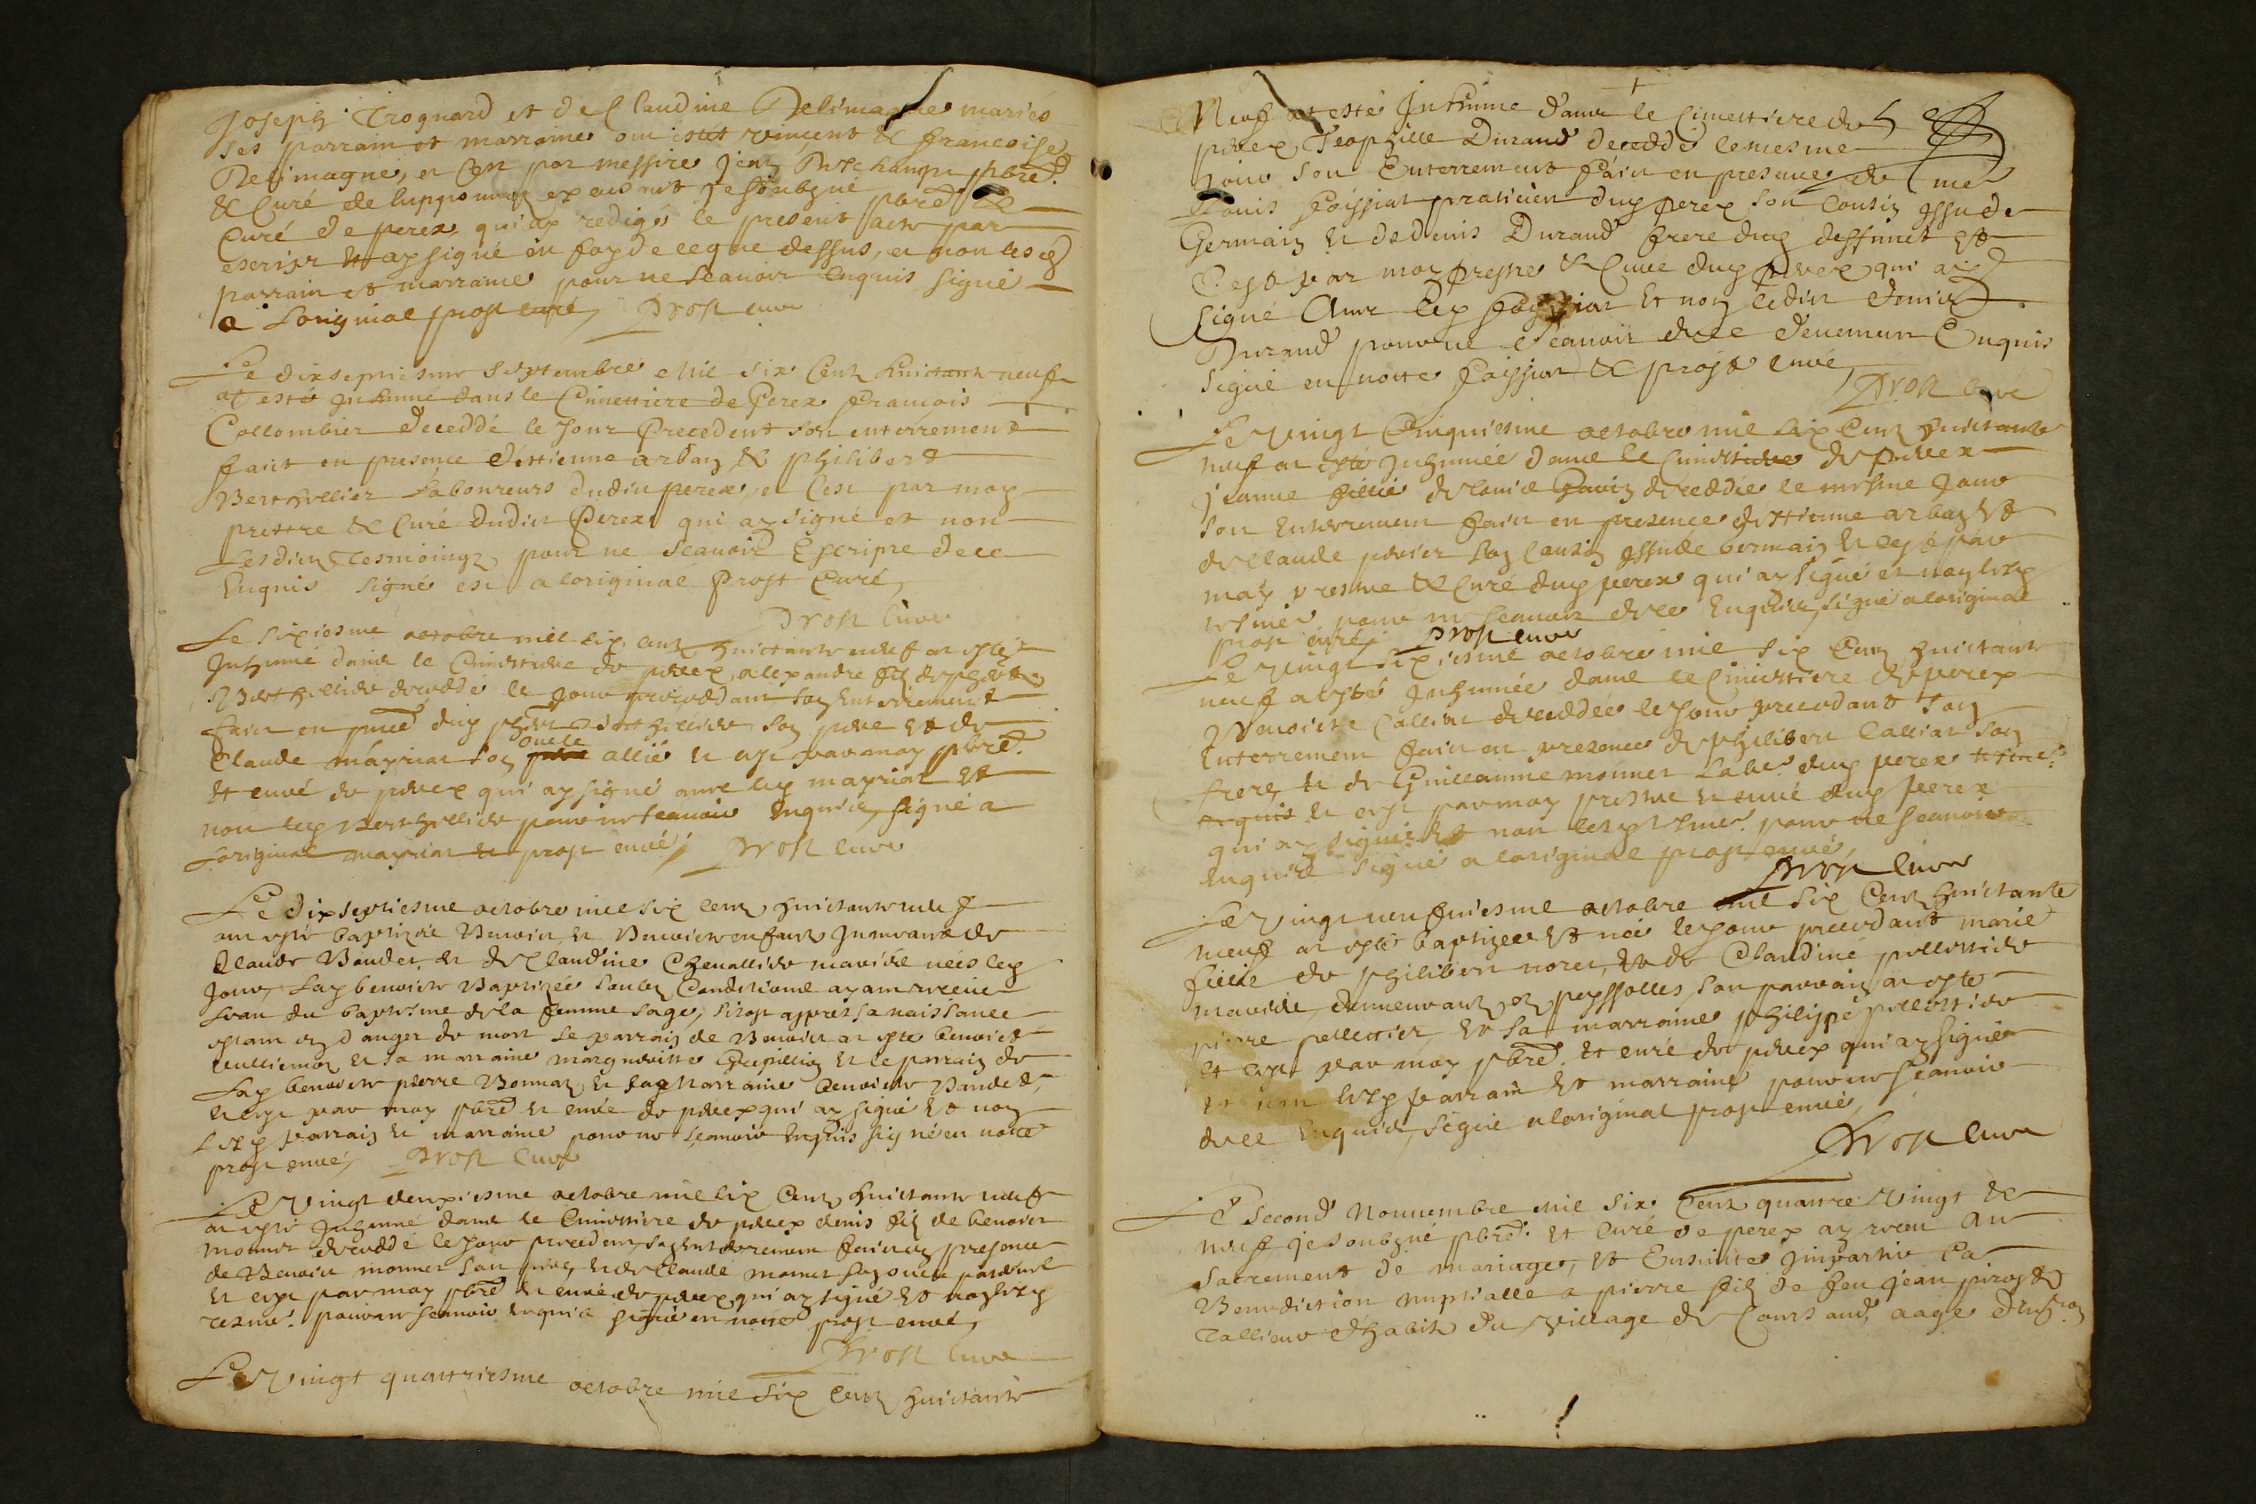 Joseph Trognard et de Claudine Delimagne mariés
ses parrain et marraine ont esté vincent & francoise
Delimagne, et c'est par messire Jean
& Curé de expediant Je soubzné pbre &
Curé de perex qui ay redigé le present acte par
escript et ay signé en foy de ce que dessus, et non lesd
parrain et marraine pour ne scauoir enquis signé
a Loriginal prost curé, Prost cure
Le dixseptiesme septembre mil six cent huictante neuf
at esté Inhumé dans le Cimettiere de Perex francois
Collombier deceddé le Jour precedent son enterrement
faict en presence d'ettienne arban & philibert
Berthillier Laboureurs dudict perex, et c'est par moy
prettre & Curé dudict Perex qui ay signé et non
Lesdictz tesmoingz pour ne scauoir Escripre de ce
Enquis signé est a loriginal Prost Curé,
Prost cure
Le sixiesme octobre mil six cent huictante neuf at esté
Inhumé dans le Cimettiere de perex, alexandre filz de phibert
Berthillier deceddé le Jour precedant son Enterrement
faict en pnce dud phibert Berthillier son pere et de
Claude mayriat son oncle allié et c'est par moy pbre
et curé de perex qui ay signé auec led mayriat et
non led Berthillier pour ne scauoir Enquis, signé a
Loriginal mayriat et prost curé, Prost cure
Le dix septiesme octobre mil six cent huictante neuf
ont esté baptizés Benoict et Benoiste enfans Jumeaux de
Claude Baudet et de Claudine Cheuallier mariés nées led
Jour, Lad benoiste Baptizée soubz Condition ayant receu
Leau du baptesme de la femme sage, sitost apprès sa naissance
estant en danger de mort Le parrain de Benoict at esté benoict
vulliemoz et sa marraine margueritte et le parrain de
Lad benoiste pierre Bonnat et sa marraine benoiste Baudet,
et c'est par moy pbre et curé de perex qui ay signé et non
Lesd parrain et marraine pour ne scauoir enquis signé en notte
prost curé, Prost cure
Le Vingt deuxiesme octobre mil six cent huictante neuf
at esté Inhumé dans le Cimettiere de perex denis filz de benoict
monnet deceddé le Jour precedent, son Enterrement faict en presence
de Benoict monnet son pere, et de Claude monnet son oncle paternel
et c'est par moy pbre et curé de perex qui ay signé et non lesd
tesmo. pour ne scauoir enquis signé en notte prost curé,
Prost cure
Le Vingt quattriesme octobre mil six cent huictante
Neuf at esté Inhumé dans le Cimettiere de
perex, Teophille Durand deceddé le mesme
Jour son Enterrement faict en presence de me
Louis foissiat praticien dud perex son cousin Issu de
Germain et de denis Durand frere dud deffunct et
C'est par moy prestre & Curé dud perex qui ay
signé Auec led foissiat et non ledict denis
Durand pour ne scauoir de ce deuement Enquis
signé en notte foissiat & prost curé,
Prost curé
Le Vingt Cinquiesme octobre mil six cent huictante
neuf at esté Inhumée dans le Cimettiere de perex
Jeanne fillie de louis deceddée le mesme Jour
son Enterrement faict en presence d'ettienne arban et
de Claude perier son cousin Issu de Germain et c'est par
moy prestre & Curé dud perex qui ay signé et non lesd
tesmo. pour ne scauoir de ce Enquis, signé a loriginal
prost curé, Prost cure
Le Vingt sixiesme octobre mil six cent huictante
neuf at esté Inhumée dans le Cimettiere de perex
benoiste Calliat deceddée le Jour precedant son
Enterrement faict en presence de philibert Calliat son
frere, et de Guilleaume monnet Labr dud perex
et c'est par moy prestre et curé dud perex
qui ay signé et non lesd tesmo. pour ne scauoir
Enquis signé a loriginal prost curé,
Prost cure
Le Vingt neufuiesme octobre mil six cent huictante
neuf at esté baptizée et née le Jour precedant marie
fillie de philibert noret, et de Claudine pelletier
mariés, demeurant en peyssolles, son parrain at esté
pierre pelletier et sa marraine philippe pelletier
et c'est par moy pbre et curé de perex qui ay signé
et non lesd parrain et marraine pour ne scauoir
de ce Enquis, signé a loriginal prost curé,
Prost cure
Le second Nouuembre mil six cent quattre Vingt et
neuf Je soubzné pbre et curé de perex ay receu au
sacrement de mariage, et Ensuitte Impartir La
Benediction nuptialle a pierre filz de feu Jean
Tallieur d'habitz du Village de aagé d'enuiron